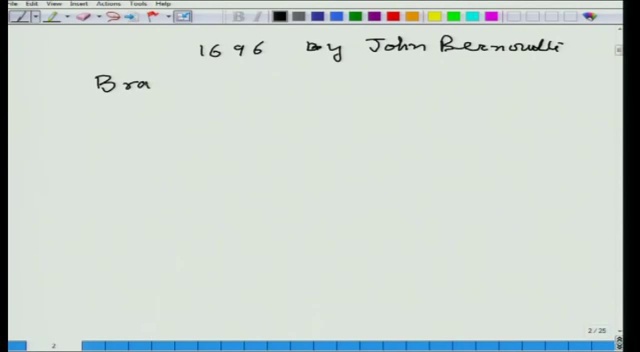 File Edit View Insert Actions Tools Help
1696 by John Bernoulli
Bra
2 / 25
2